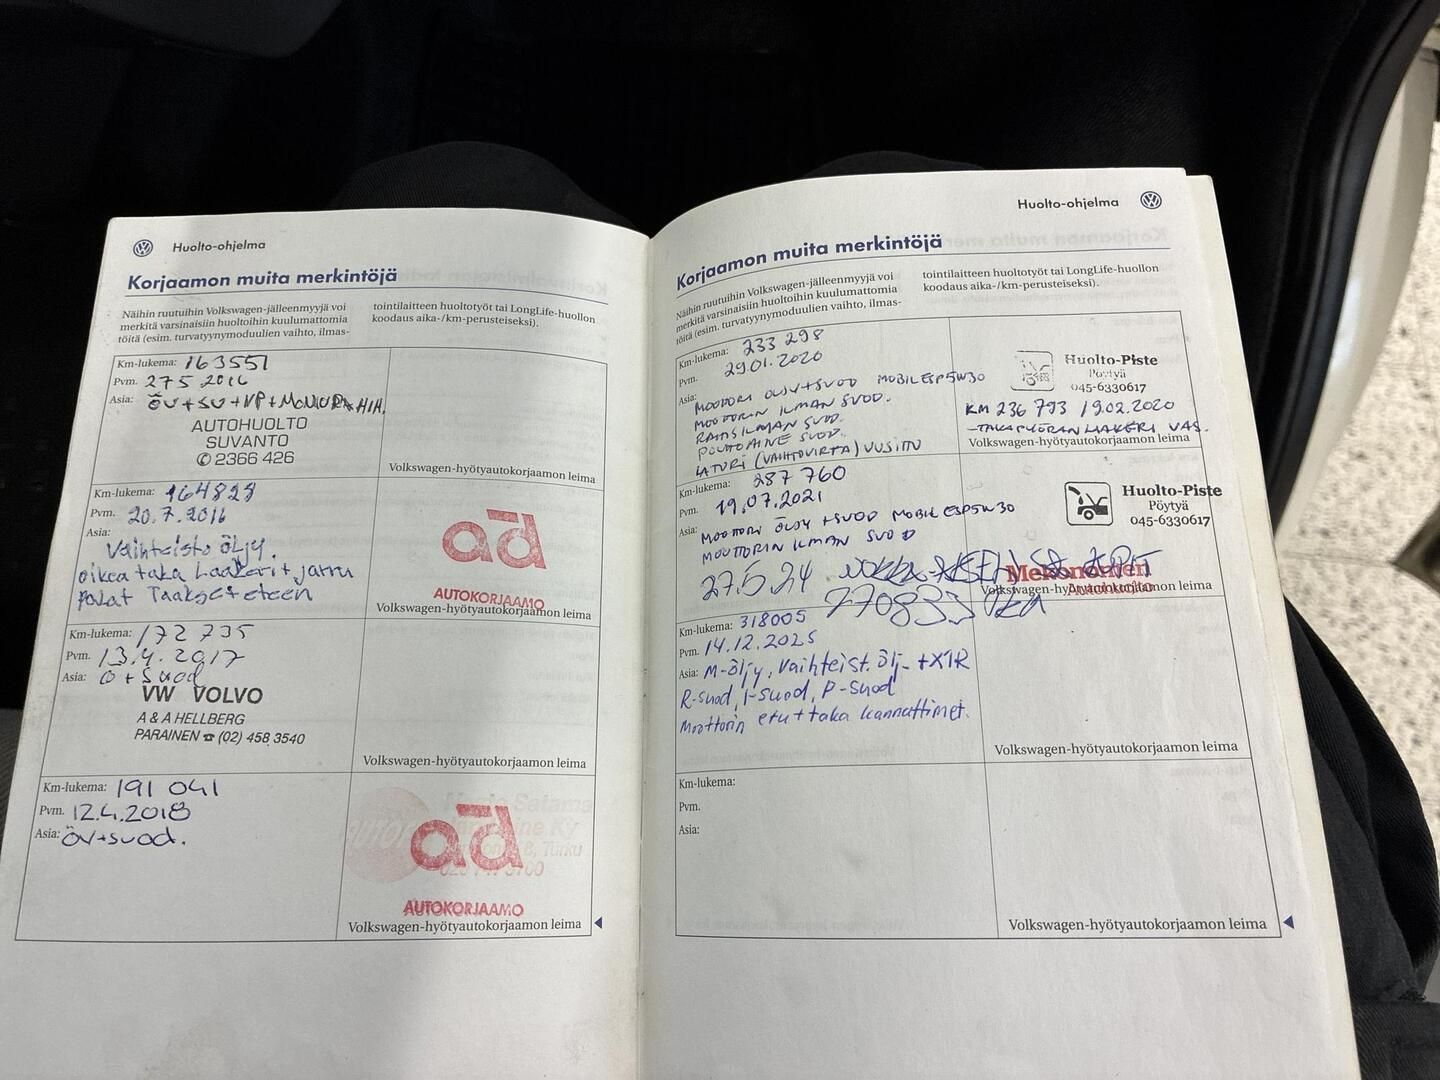 Huolto-ohjelma
Korjaamon muita merkintöjä
Näihin ruutuihin Volkswagen-jälleenmyyjä voi
merkitä varsinaisiin huoltoihin kuulumattomia
töitä (esim. turvatyynymoduulien vaihto, ilmas-
tointilaitteen huoltotyöt tai LongLife-huollon
koodaus aika-/km-perusteiseksi).
Km-lukema: 163551
Pvm. 27.5.2016
Asia: ÖV+SU+VP+
AUTOHUOLTO
SUVANTO
✆ 2366 426
Volkswagen-hyötyautokorjaamon leima
Km-lukema: 164828
Pvm. 20.7.2016
Asia:
Vaihteisto öljy.
oikea taka Laakerit + jarru
palat Taakse + eteen
ad
AUTOKORJAAMO
Volkswagen-hyötyautokorjaamon leima
Km-lukema: 172 735
Pvm. 13.4.2017
Asia: Ö+Suod
VW VOLVO
A & A HELLBERG
PARAINEN ☎ (02) 458 3540
Volkswagen-hyötyautokorjaamon leima
Km-lukema: 191 041
Pvm. 12.4.2018
Asia: ÖV+suod.
ad
AUTOKORJAAMO
Volkswagen-hyötyautokorjaamon leima
Huolto-ohjelma
Korjaamon muita merkintöjä
Näihin ruutuihin Volkswagen-jälleenmyyjä voi
merkitä varsinaisiin huoltoihin kuulumattomia
töitä (esim. turvatyynymoduulien vaihto, ilmas-
tointilaitteen huoltotyöt tai LongLife-huollon
koodaus aika-/km-perusteiseksi).
Km-lukema: 233 298
Pvm. 29.01.2020
Asia: MOOTTORI ÖLJY+SUOD MOBIL ESP5W30
MOOTTORIN ILMAN SUOD.
RAITISILMAN SUOD.
POLTTOAINE SUOD.
LATURI (VAIHTOVIRTA) UUSITTU
Huolto-Piste
Pöytyä
045-6330617
KM 236 793 19.02.2020
-TAKAPYÖRÄN LAAKERI VAS.
Volkswagen-hyötyautokorjaamon leima
Km-lukema: 287 760
Pvm. 19.07.2021
Asia: MOOTTORI ÖLJY +SUOD MOBIL ESP5W30
MOOTTORIN ILMAN SUOD
27.5.24
Huolto-Piste
Pöytyä
045-6330617
Mekonomen
Autohuolto
Volkswagen-hyötyautokorjaamon leima
Km-lukema: 318005
Pvm. 14.12.2025
Asia: M-öljy, Vaihteist. ölj- + XTR
R-suod, I-suod, P-suod
Moottorin etu + taka kannattimet.
Volkswagen-hyötyautokorjaamon leima
Km-lukema:
Pvm.
Asia:
Volkswagen-hyötyautokorjaamon leima